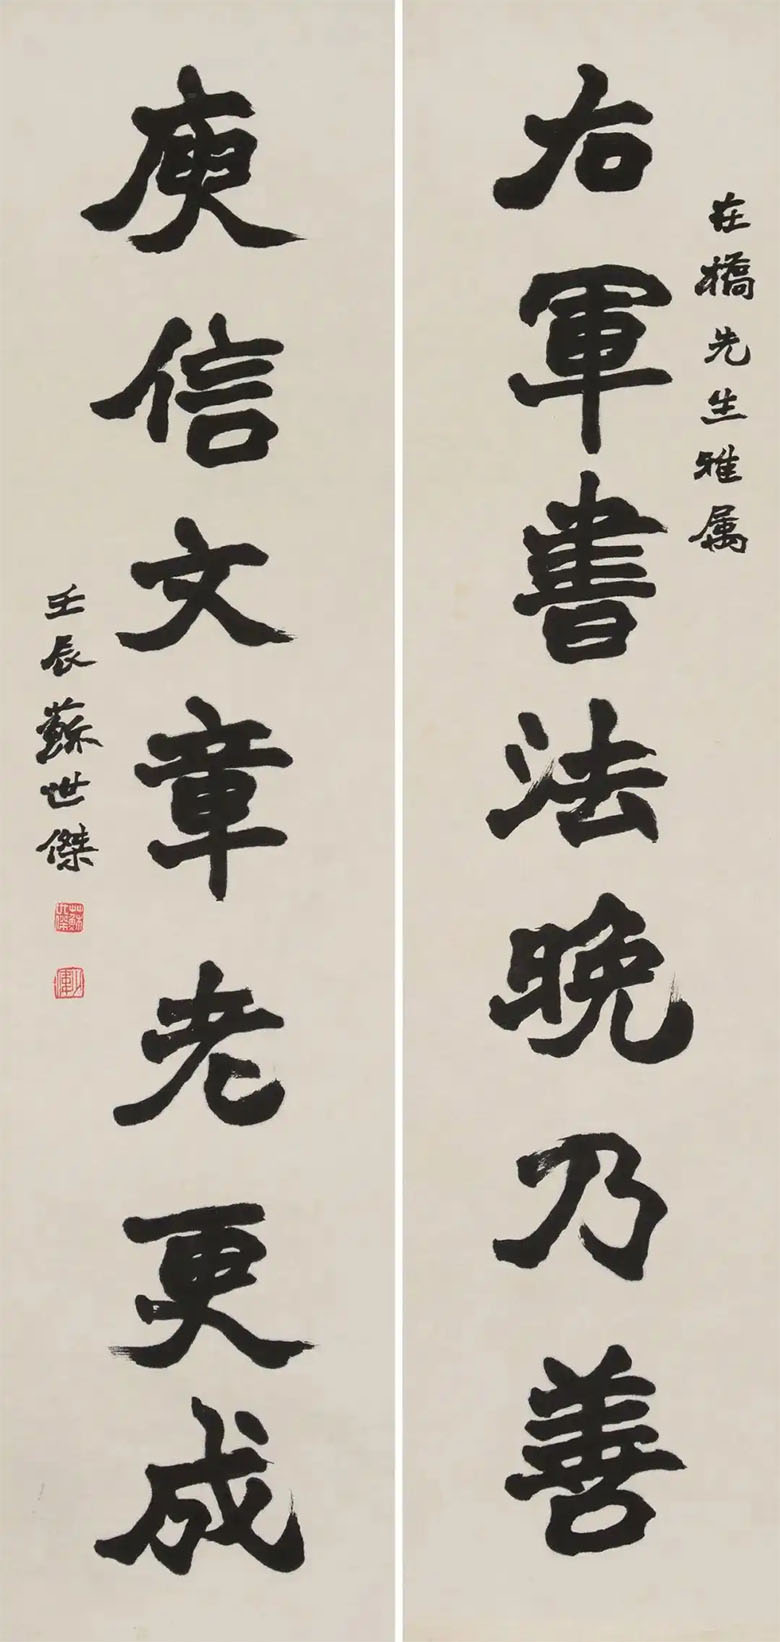 在橋先生雅属
右軍書法晚乃善
庾信文章老更成
壬辰蘇世傑
蘇世傑